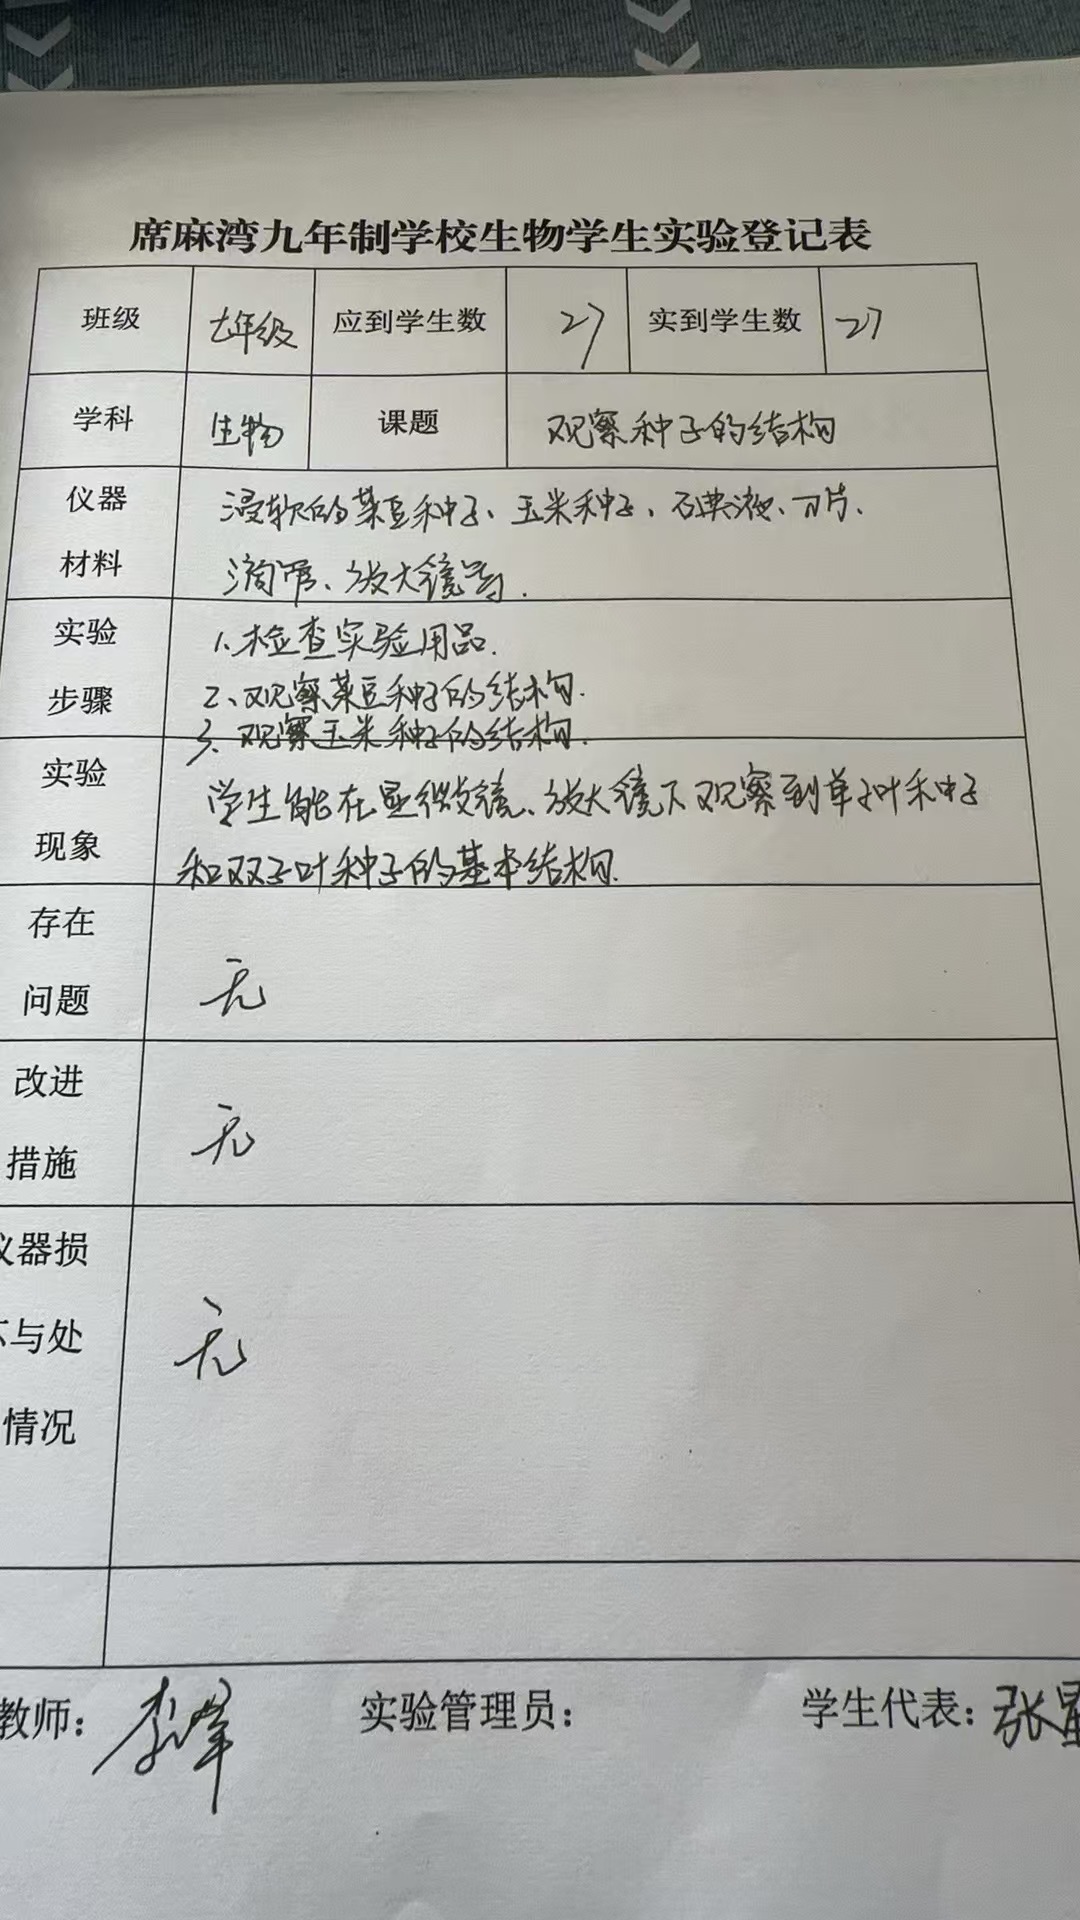 席麻湾九年制学校生物学生实验登记表
班级 七年级 应到学生数 27 实到学生数 27
学科 生物 课题 观察种子的结构
仪器 浸软的菜豆种子、玉米种子、碘液、刀片、
材料 滴管、放大镜等.
实验 1、检查实验用品.
步骤 2、观察菜豆种子的结构.
3、观察玉米种子的结构.
实验 学生能在显微镜、放大镜下观察到单子叶种子
现象 和双子叶种子的基本结构.
存在
问题 无
改进
措施 无
仪器损
坏与处 无
情况
教师: 李峰 实验管理员: 学生代表: 张